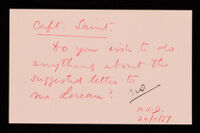 Capt. Saint.
Do you wish to do
anything about the
suggested letter to
Mr. Loreau?
no
N.V.D.
29/11/57